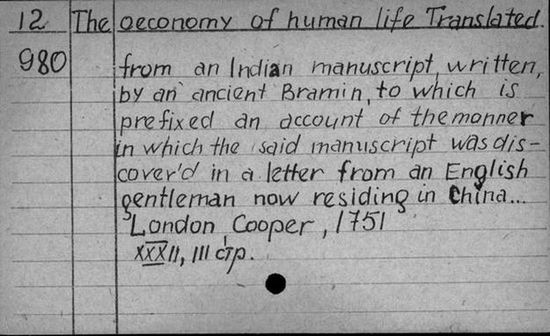 12 The oeconomy of human life Translated.
980 from an Indian manuscript, written,
by an ancient Bramin, to which is
prefixed an account of the manner
in which the said manuscript was dis-
cover'd in a letter from an English
gentleman now residing in China...
London Cooper, 1751
XXXII, III стр.